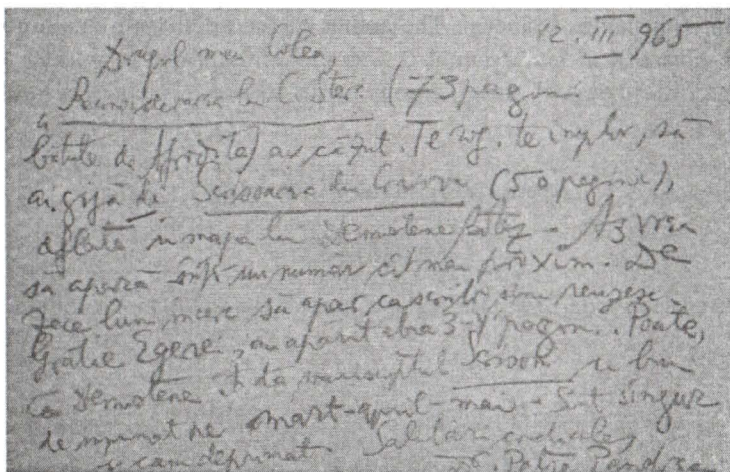 12. III 965
Dragul meu Colea,
„Reconsiderarea lui C. Stere (73 pagini
batute de Afrodita) a căzut. Te rog, te implor, să
ai grijă de Scrisoarea din Craiova (50 pagini),
aflată în mapa lui Demostene Botez. Aș vrea
să apară într-un număr cît mai proxim. De
zece luni încerc să apar ca scriitor și nu reușesc.
Grație Egerei, au apărut abia 3-4 pagini. Poate,
ca Demostene să dea manuscriptul Scrisorii
de mart-april-mai. Sînt singur
și cam deprimat. Salutări cordiale,
Dr. Petre Pandrea